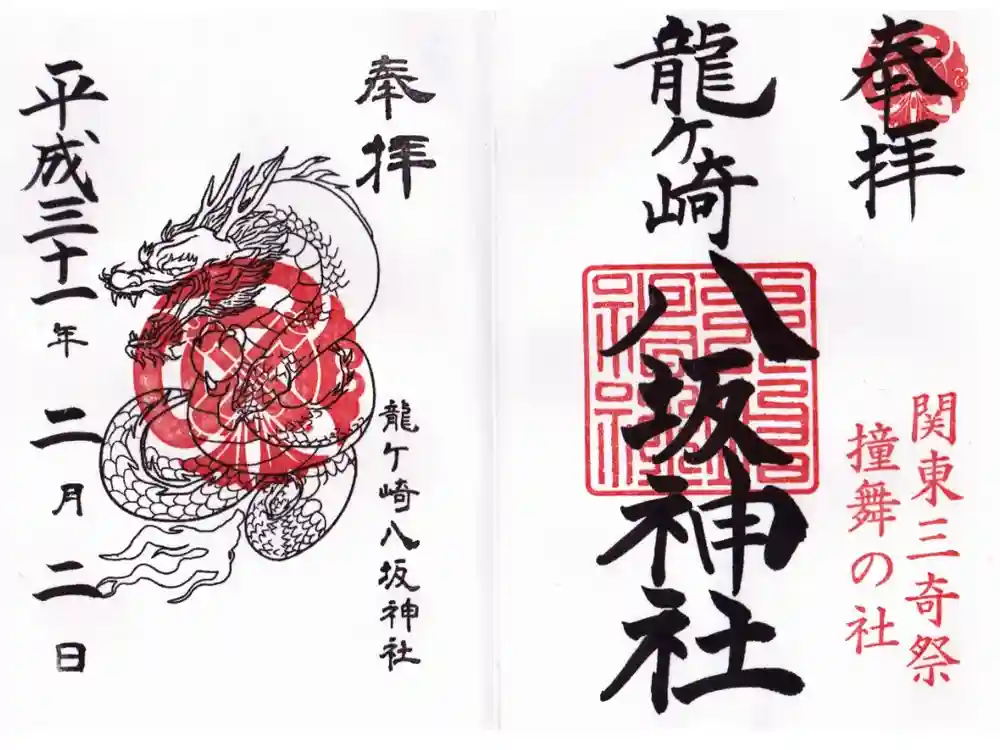 奉拝
関東三奇祭
撞舞の社
龍ヶ崎八坂神社
奉拝
龍ヶ崎八坂神社
平成三十一年二月二日